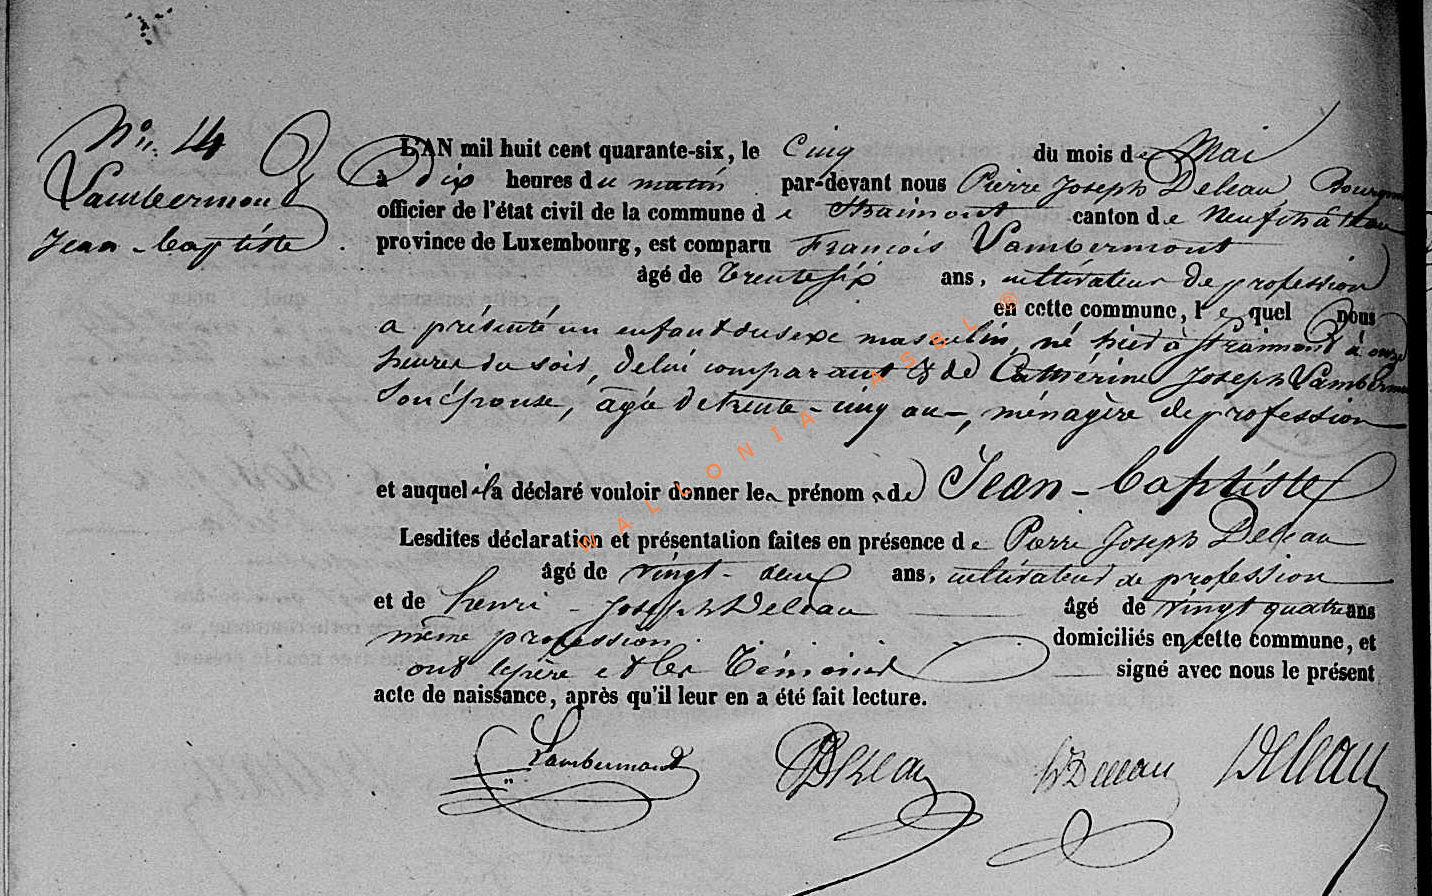 N° 14
Lambermont
Jean-Baptiste
L'AN mil huit cent quarante-six, le Cinq du mois de Mai
à dix heures du matin par-devant nous Pierre Joseph Deleau Bourgm
officier de l'état civil de la commune de Straimont canton de Neufchâteau
province de Luxembourg, est comparu François Lambermont
âgé de trente six ans, cultivateur de profession
en cette commune, lequel nous
a présenté un enfant du sexe masculin, né hier à Straimont à onze
heures du soir, de lui comparant & de Cathérine Joseph Lamberm
son épouse, agée de trente-cinq ans, ménagère de profession
et auquel il a déclaré vouloir donner le prénom de Jean-Baptiste
Lesdites déclaration et présentation faites en présence de Pierre Joseph Deleau
âgé de vingt-deux ans, cultivateur de profession
et de henri-Joseph Deleau âgé de vingt quatre ans
même profession domiciliés en cette commune, et
ont le père et les témoins signé avec nous le présent
acte de naissance, après qu'il leur en a été fait lecture.
Lambermont Deleau h Deleau Deleau
WALLONIA ASBL ®